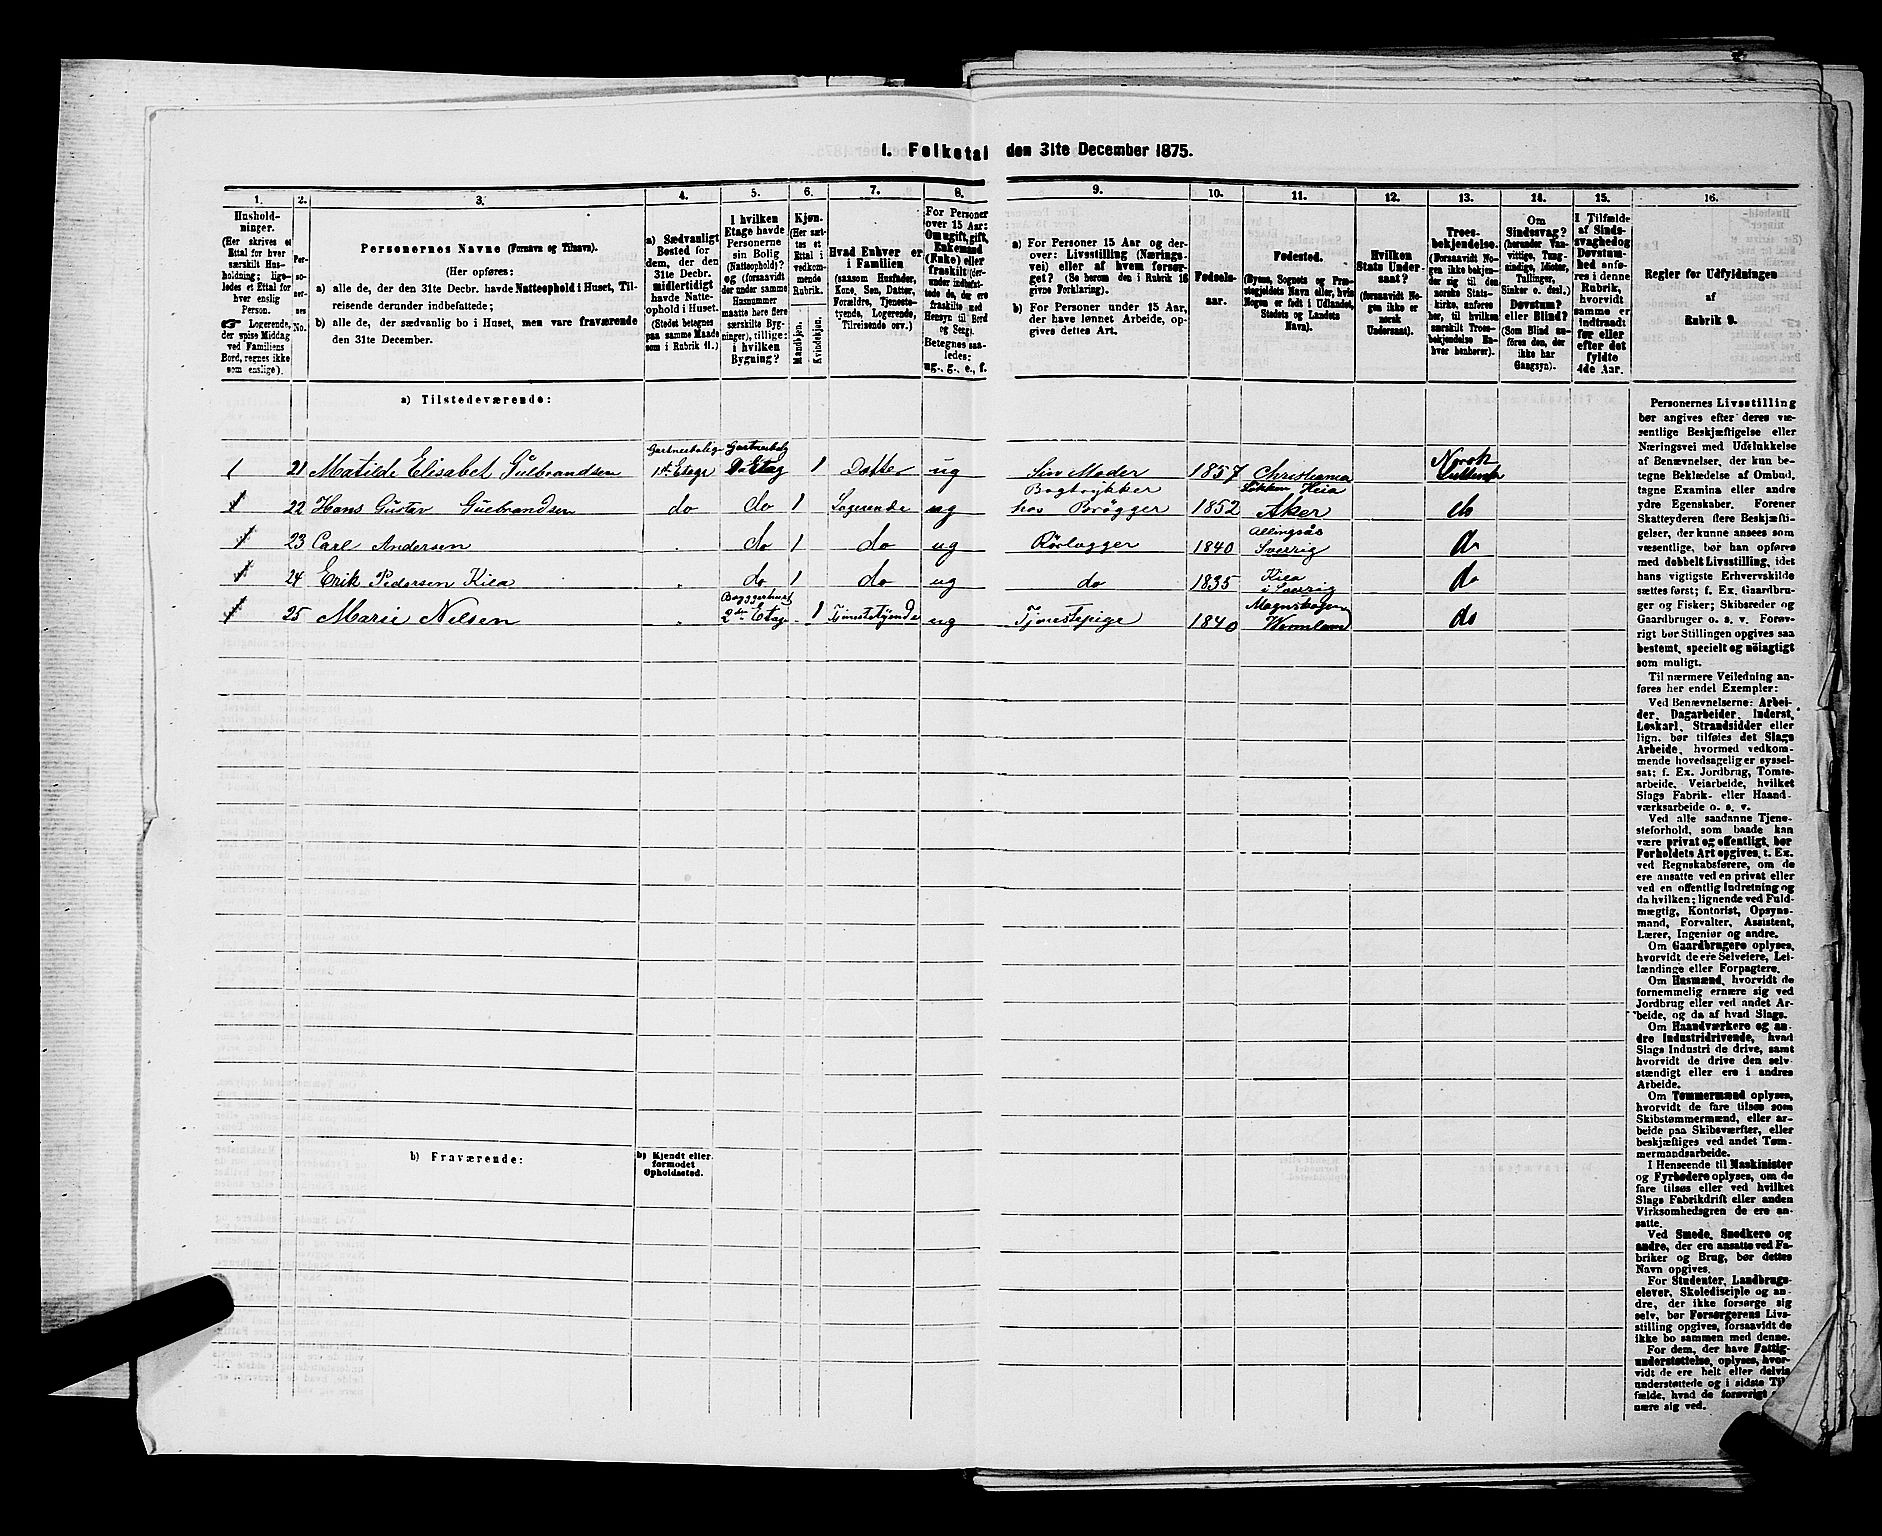 1. Folketal den 31te December 1875.
1. 2. 3. 4. 5. 6. 7. 8. 9. 10. 11. 12. 13. 14. 15. 16.
Hushold-
ninger.
(Her skrives et
Ettal for hver
særskilt Hus-
holdning; lige-
ledes et Ettal for
hver enslig
Person.
☞ Logerende,
der spise Middag
ved Familiens
Bord, regnes ikke
som enslige).
Per-
so-
ner-
nes
No.
Personernes Navne (Fornavn og Tilnavn).
(Her opføres:
a) alle de, der den 31te Decbr. havde Natteophold i Huset, Til-
reisende derunder indbefattede;
b) alle de, der sædvanlig bo i Huset, men vare fraværende
den 31te December.
a) Sædvanligt
Bosted for
dem, der den
31te Decbr.
midlertidigt
havde Natte-
ophold i Huset.
(Stedet betegnes
paa samme Maade
som i Rubrik 11.)
I hvilken
Etage havde
Personerne
sin Bolig
(Natteophold)?
og (forsaavidt
der under samme
Husnummer
maatte høre flere
særskilte Byg-
ninger), tillige:
i hvilken
Bygning?
Kjøn.
(Her sæt-
tes et
Ettal i
vedkom-
mende
Rubrik.
Mandkjøn.
Kvindekjøn.
Hvad Enhver er
i Familien
(saasom Husfader,
Kone, Søn, Datter,
Forældre, Tjeneste-
tyende, Logerende,
Tilreisende osv.)
For Personer
over 15 Aar:
Om ugift, gift,
Enkemand
(Enke) eller
fraskilt (der-
under indbefat-
tede de, der ere
fraskilte med
Hensyn til Bord
og Seng).
Betegnes saa-
ledes:
ug., g., e., f.
a) For Personer 15 Aar og der-
over: Livsstilling (Nærings-
vei) eller af hvem forsør-
get? (Se herom den i Rubrik 16
givne Forklaring).
b) For Personer under 15 Aar,
der have lønnet Arbeide, op-
gives dettes Art.
Fødsels-
aar.
Fødested.
(Byens, Sognets og Præ-
stegjeldets Navn eller, hvis
Nogen er født i Udlandet,
Stedets og Landets
Navn).
Hvilken
Stats Under-
saat?
(forsaavidt No-
gen ikke er
norsk
Undersaat).
Troes-
bekjendelse.
(Forsaavidt No-
gen ikke bekjen-
der sig til den
norske Stats-
kirke, anføres
her, til hvilken
særskilt Troes-
bekjendelse En-
hver henhører).
Om
Sindssvag?
(herunder, Van-
vittige, Tung-
sindige, Idioter,
Tullinger,
Sinker o. desl.)
Døvstum?
eller Blind?
(Som Blind an-
føres den, der
ikke har
Gangsyn).
I Tilfælde
af Sinds-
svaghed og
Døvstum-
hed anfø-
res i denne
Rubrik,
hvorvidt
samme er
indtraadt
før eller
efter det
fyldte
4de Aar.
Regler for Udfyldningen
af
Rubrik 9.
a) Tilstedeværende:
1 21 Matilde Elisabet Gulbrandsen Gartnerbolig 1ste Etage Gartnerbolig Etag 1 Datter ug hos Moder 1857 Christiania Norsk Luthersk
1 22 Hans Gustav Gulbrandsen do do 1 Logerende ug Bogtrykker hos Brøgger 1852 Løkken Heia Aker do
1 23 Carl Andersen " do 1 do ug Rørlægger 1840 Allingsås Sverrig do
1 24 Erik Pedersen Kila " do 1 do ug do 1835 Kila i Sverrig do
1 25 Marie Nilsen Baggaarden 2den Etag 1 Tjenestetyende ug Tjenestepige 1840 Magnskogen Wermland do
b) Fraværende:
b) Kjendt eller
formodet
Opholdssted.
Personernes Livsstilling
bør angives efter deres væ-
sentlige Beskjæftigelse eller
Næringsvei med Udelukkelse
af Benævnelser, der kun be-
tegne Beklædelse af Ombud,
tagne Examina eller andre
ydre Egenskaber. Forener
Skatteyderen flere Beskjæfti-
gelser, der kunne ansees som
væsentlige, bør han opføres
med dobbelt Livsstilling, idet
hans vigtigste Erhvervskilde
sættes først; f. Ex. Gaardbru-
ger og Fisker; Skibsreder og
Gaardbruger o. s. v. Forøv-
rigt bør Stillingen opgives saa
bestemt, specielt og nöiagtigt
som muligt.
Til nærmere Veiledning an-
føres her endel Exempler:
Ved Benævnelserne: Arbei-
der, Dagarbeider, Inderst,
Løskarl, Strandsidder eller
lign. bør tilføies det Slags
Arbeide, hvormed vedkom-
mende hovedsagelig er syssel-
sat; f. Ex. Jordbrug, Tomte-
arbeide, Veiarbeide, hvilket
Slags Fabrik- eller Haand-
værksarbeide o. s. v.
Ved alle saadanne Tjene-
steforhold, som baade kan
være privat og offentligt, bør
Forholdets Art opgives, t. Ex.
ved Regnskabsførere, om de
ere ansatte ved en privat eller
ved en offentlig Indretning og
da hvilken; lignende ved Fuld-
mægtig, Kontorist, Opsyns-
mand, Forvalter, Assistent,
Lærer, Ingeniør og andre.
Om Gaardbrugere oplyses,
hvorvidt de ere Selveiere, Lei-
lændinge eller Forpagtere.
Om Husmænd, hvorvidt de
fornemmelig ernære sig ved
Jordbrug eller ved andet Ar-
beide, og da af hvad Slags.
Om Haandværkere og an-
dre Industridrivende, hvad
Slags Industri de drive, samt
hvorvidt de drive den selv-
stændigt eller ere i andres
Arbeide.
Om Tømmermænd oplyses,
hvorvidt de fare tilsøs som
Skibstømmermænd, eller ar-
beide paa Skibsværfter, eller
beskjæftiges ved andet Tøm-
mermandsarbeide.
I Henseende til Maskinister
og Fyrbødere oplyses, om de
fare tilsøs eller ved hvilket
Slags Fabrikdrift eller anden
Virksomhedsgren de ere an-
satte.
Ved Smede, Snedkere og
andre, der ere ansatte ved Fa-
briker og Brug, bør dettes
Navn opgives.
For Studenter, Landbrugs-
elever, Skoledisciple og an-
dre, der ikke forsørge sig
selv, bør Forsørgerens Livs-
stilling opgives, forsaavidt de
ikke bo sammen med denne.
For dem, der have Fattig-
understøttelse, oplyses, hvor-
vidt de ere helt eller delvis
understøttede og i sidste Til-
fælde, hvad de forøvrigt
nære sig ved.